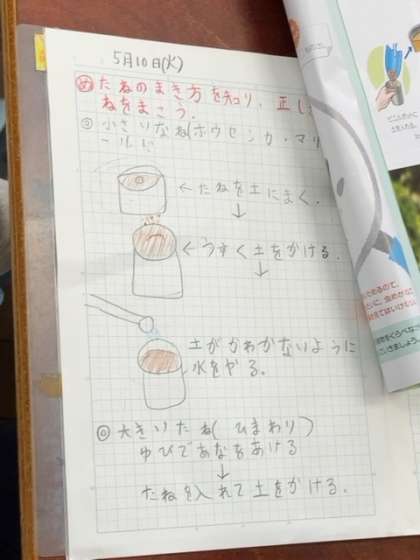 5月10日(火)
め たねのまき方を知り、正し
ねをまこう.
小さいたね(ホウセンカ・マリ
ールド
←たねを土にまく.
↓
←うすく土をかける.
↓
土がかわかないように
水をやる.
大きいたね( ひまわり )
ゆびであなをあける
↓
たねを入れて土をかける.